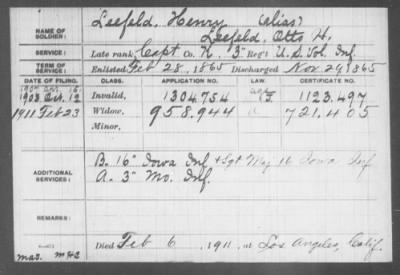 NAME OF SOLDIER: Leefeld, Henry (alias)
Leefeld, Otto H.
SERVICE: Late rank, Capt Co. K. 3" Reg't U.S. Vol. Inf.
TERM OF SERVICE: Enlisted Feb 28, 1865 Discharged Nov 29, 1865
DATE OF FILING. CLASS. APPLICATION NO. LAW. CERTIFICATE NO.
1907 Apr. 15.
1903 Oct. 12 Invalid, 1304.754 1123.497
1911 Feb 23 Widow, 958.944 721.405
Minor,
ADDITIONAL SERVICES: B. 16" Iowa Inf + Sgt Maj 16 Iowa Inf
A. 3" Mo. Inf.
REMARKS:
Died Feb 6, 1911, at Los Angeles, Calif.